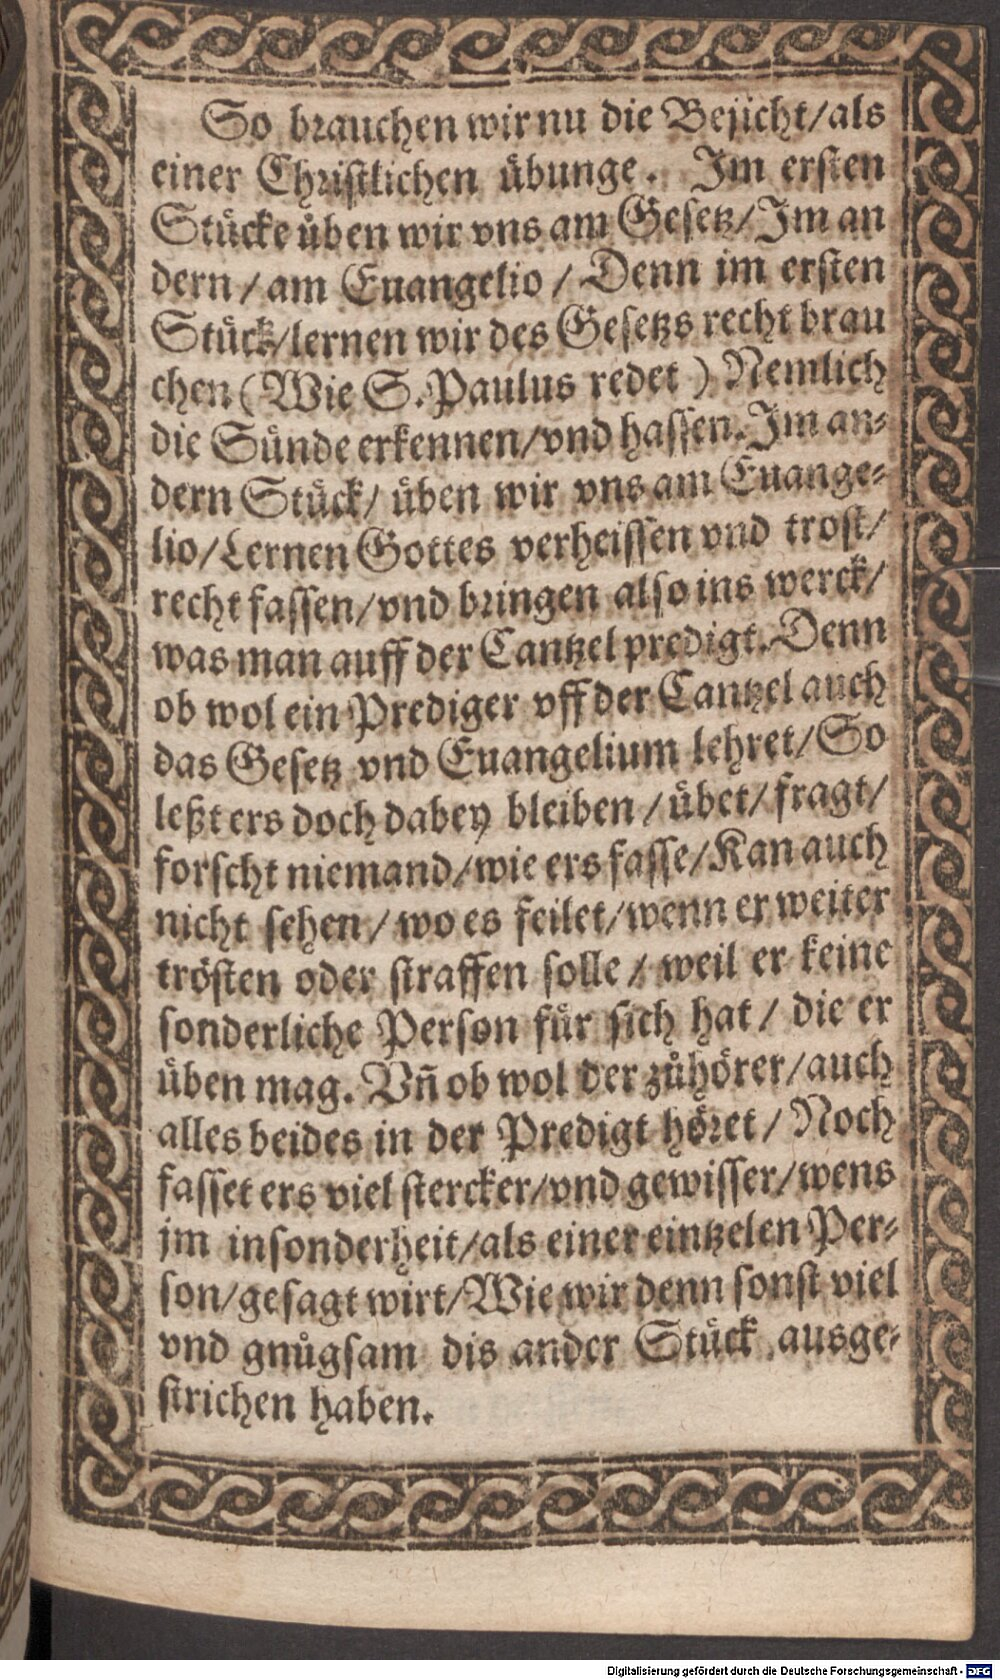 So brauchen wir nu die Bejicht/als
einer Christlichen übunge. Im ersten
Stücke üben wir vns am Gesetz/Im an
dern/am Euangelio/Denn im ersten
Stück/lernen wir des Gesetzs recht brau
chen(Wie S.Paulus redet) Nemlich
die Sünde erkennen/vnd hassen.Im an-
dern Stück/ üben wir vns am Euange-
lio/Lernen Gottes verheissen vnd trost/
recht fassen/vnd bringen also ins werck/
was man auff der Cantzel predigt.Denn
ob wol ein Prediger vff der Cantzel auch
das Gesetz vnd Euangelium lehret/So
leßt ers doch dabey bleiben/übet/fragt/
forscht niemand/wie ers fasse/Kan auch
nicht sehen/wo es feilet/wenn er weiter
trösten oder straffen solle/weil er keine
sonderliche Person für sich hat/die er
üben mag. Vñ ob wol der zůhörer/auch
alles beides in der Predigt höret/Noch
fasset ers viel stercker/vnd gewisser/wens
jm insonderheit/als einer eintzelen Per-
son/gesagt wirt/Wie wir denn sonst viel
vnd gnůgsam dis ander Stück ausge-
strichen haben.
Digitalisierung gefördert durch die Deutsche Forschungsgemeinschaft - DFG